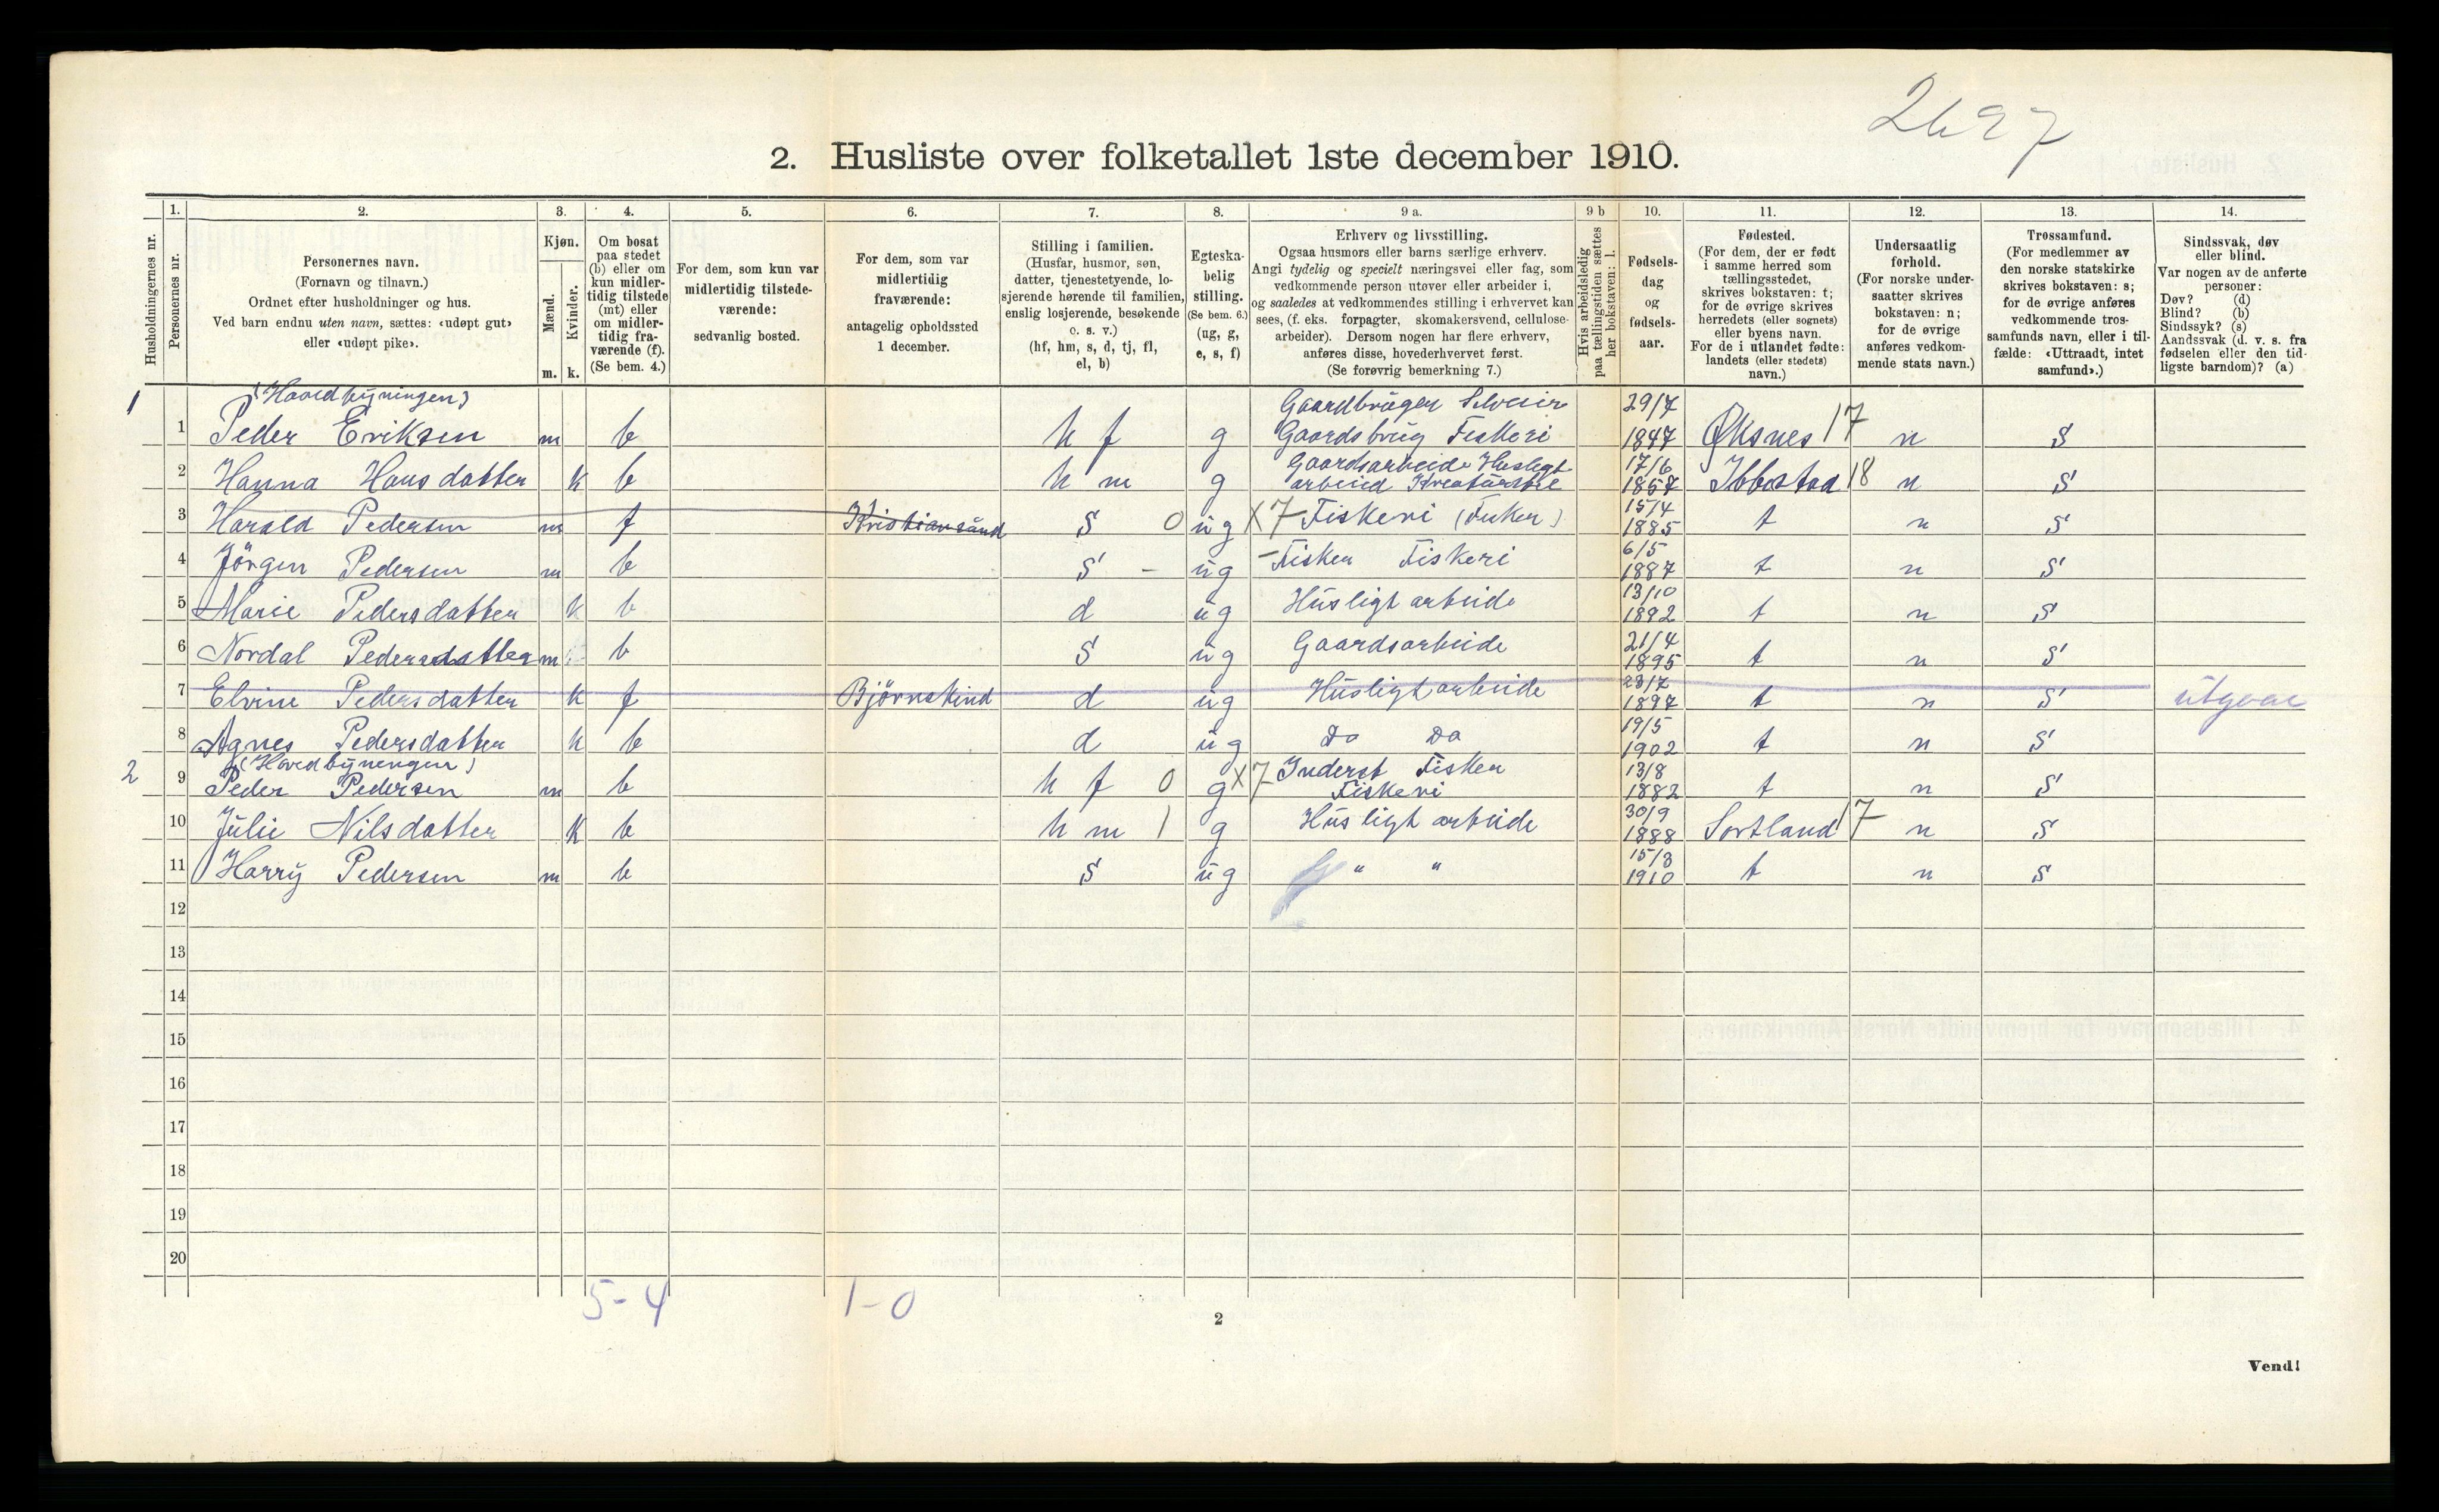 2697
2. Husliste over folketallet 1ste december 1910.
Husholdningernes nr.
1.
Personernes nr.
2.
Personernes navn.
(Fornavn og tilnavn.)
Ordnet efter husholdninger og hus.
Ved barn endnu uten navn, sættes: «udøpt gut»
eller «udøpt pike».
3.
Kjøn.
Mænd.
Kvinder.
m. k.
4.
Om bosat
paa stedet
(b) eller om
kun midler-
tidig tilstede
(mt) eller
om midler-
tidig fra-
værende (f).
(Se bem. 4.)
5.
For dem, som kun var
midlertidig tilstede-
værende:
sedvanlig bosted.
6.
For dem, som var
midlertidig
fraværende:
antagelig opholdssted
1 december.
7.
Stilling i familien.
(Husfar, husmor, søn,
datter, tjenestetyende, lo-
sjerende hørende til familien,
enslig losjerende, besøkende
o. s. v.)
(hf, hm, s, d, tj, fl,
el, b)
8.
Egteska-
belig
stilling.
(Se bem. 6.)
(ug, g,
e, s, f)
9 a.
Erhverv og livsstilling.
Ogsaa husmors eller barns særlige erhverv.
Angi tydelig og specielt næringsvei eller fag, som
vedkommende person utøver eller arbeider i,
og saaledes at vedkommendes stilling i erhvervet kan
sees, (f. eks. forpagter, skomakersvend, cellulose-
arbeider). Dersom nogen har flere erhverv,
anføres disse, hovederhvervet først.
(Se forøvrig bemerkning 7.)
9 b
Hvis arbeidsledig
paa tællingstiden sættes
her bokstaven: l.
10.
Fødsels-
dag
og
fødsels-
aar.
11.
Fødested.
(For dem, der er født
i samme herred som
tællingsstedet,
skrives bokstaven: t;
for de øvrige skrives
herredets (eller sognets)
eller byens navn.
For de i utlandet fødte:
landets (eller stedets)
navn.)
12.
Undersaatlig
forhold.
(For norske under-
saatter skrives
bokstaven: n;
for de øvrige
anføres vedkom-
mende stats navn.)
13.
Trossamfund.
(For medlemmer av
den norske statskirke
skrives bokstaven: s;
for de øvrige anføres
vedkommende tros-
samfunds navn, eller i til-
fælde: «Uttraadt, intet
samfund».)
14.
Sindssvak, døv
eller blind.
Var nogen av de anførte
personer:
Døv? (d)
Blind? (b)
Sindssyk? (s)
Aandssvak (d. v. s. fra
fødselen eller den tid-
ligste barndom)? (a)
1 (Hovedbyningen) Gaardbruger 29/7
1 Peder Eriksen m b h f g Gaardsbrug Fiskeri 1847 Øksnes 17 n S
Gaardsarbeide Husligt 17/6
2 Hanna Hansdatter k b h m g arbeied 1857 Ibbestad 18 n S
15/4
3 Harald Pedersen m f Kristiansund S 0 ug X7 Fiskeri (Fisker) 1885 t n S
6/5
4 Jörgen Pedersen m b S - ug - Fisker Fiskeri 1887 t n S
13/10
5 Marie Pedersdatter k b d ug Husligt arbeide 1892 t n S
21/4
6 Nordal Pedersdatter m b S ug Gaardsarbeide 1895 t n S
28/7
7 Elvine Pedersdatter k f Björnskind d ug Husligt arbeide 1897 t n S utgaar
19/5
8 Agnes Pedersdatter k b d ug Do Do 1902 t n S
2 (Hovedbyningen) Inderst Fisker 13/8
9 Peder Pedersen m b h f 0 g X7 Fiskeri 1882 t n S
30/9
10 Julie Nilsdatter k b h m 1 g Husligt arbeide 1888 Sortland 17 n S
15/3
11 Harry Pedersen m b S ug " " 1910 t n S
12
13
14
15
16
17
18
19
20
5-4 1-0
2
Vend!